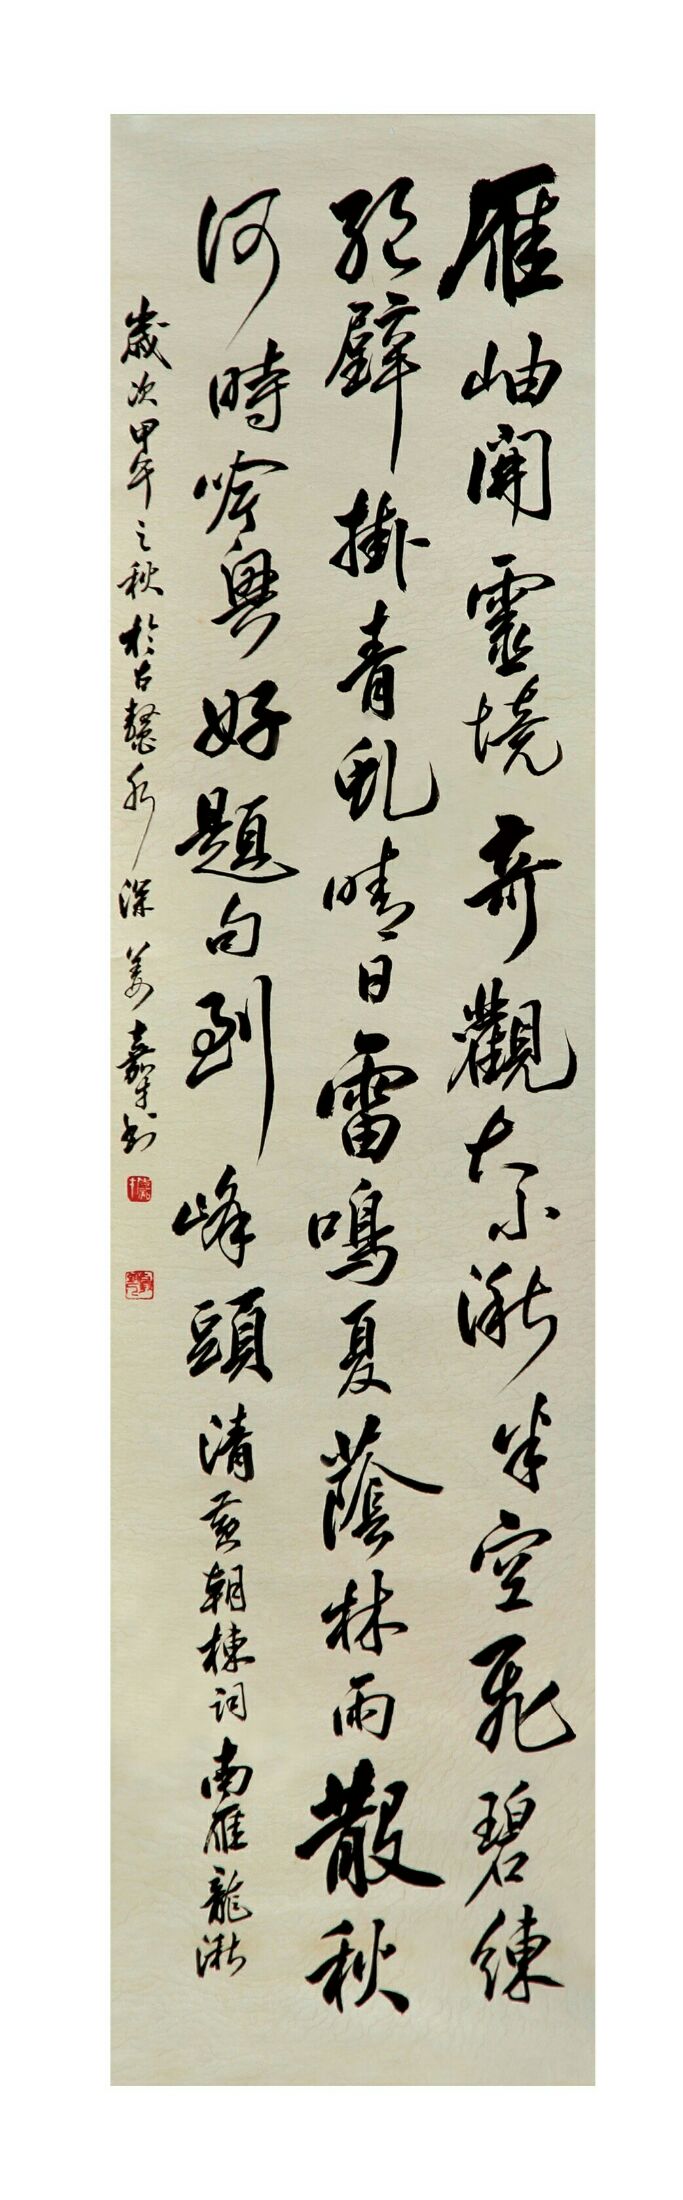 雁岫開靈境奇觀大小湫半空飛碧練
絕壁掛青虬晴日雷鳴夏蔭林雨散秋
何時吟興好題句到峰頭清黃朝棟詞南雁龍湫
歲次甲午之秋於古鰲水深姜嘉才书